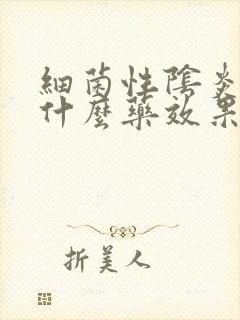 細菌性陰炎
什麼藥效果
折美人